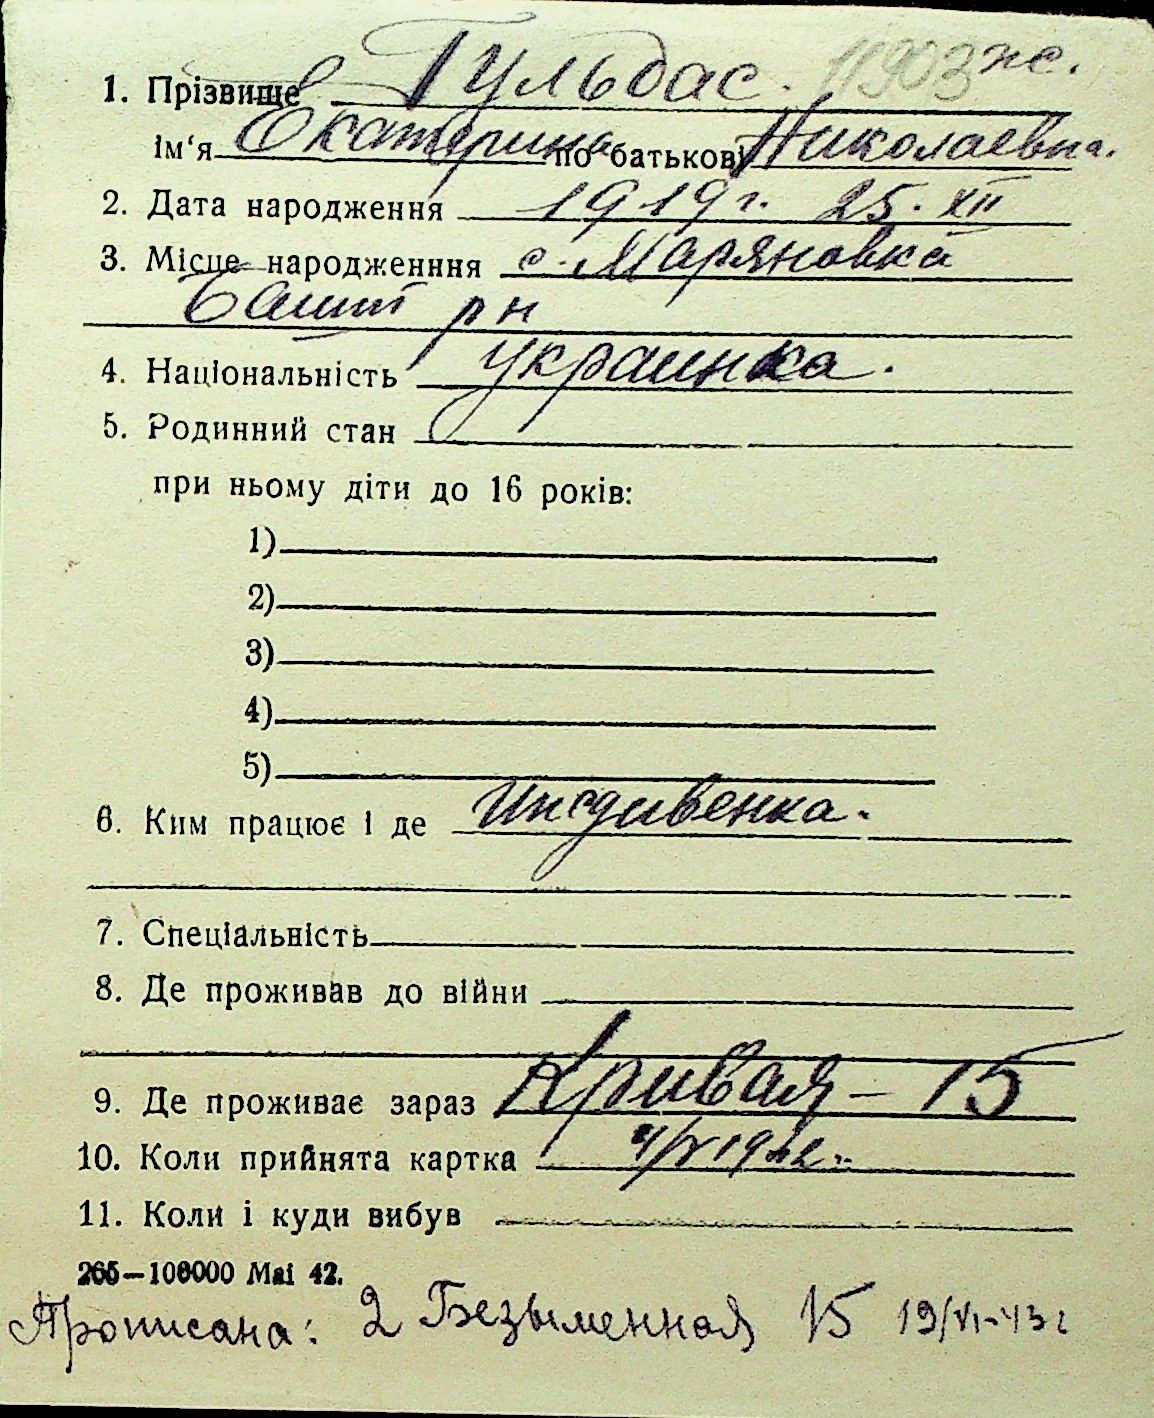 1. Прізвище Гульбас. 11903 жс.
Ім‘я Екатерина по батькові Николаевна.
2. Дата народження 1919 г. 25. XII
3. Місце народженння с. Маряновка
Башт р н
4. Національність украинка.
5. Родинний стан
при ньому діти до 16 років:
1)
2)
3)
4)
5)
6. Ким працює і де Иждивенка.
7. Спеціальність
8. Де проживав до війни
9. Де проживає зараз Кривая – 15
10. Коли прийнята картка 4/V 1942 г.
11. Коли і куди вибув
265—100000 Mai 42.
Прописана: 2 Безыменная 15 19/VI-43 г